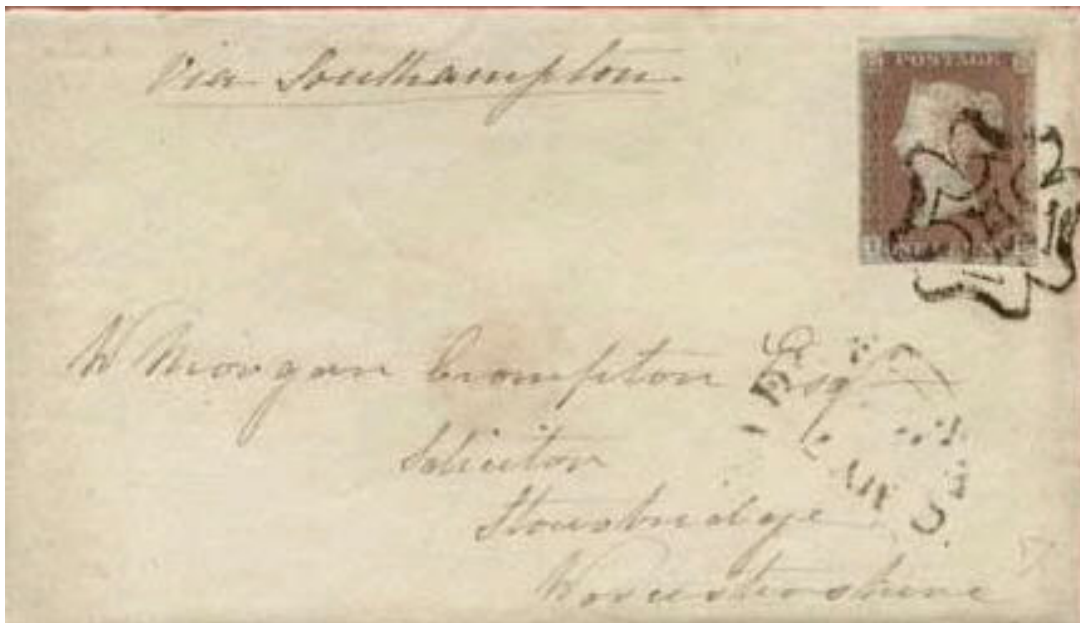 Via Southampton
POSTAGE
W Morgan Crompton Esq
Solicitor
Stourbridge
Worcestershire